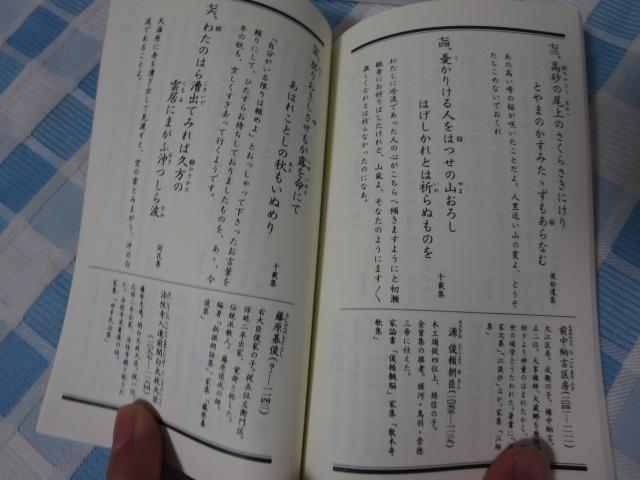 七三、高砂の尾上のさくらさきにけり
とやまのかすみたゝずもあらなむ
後拾遺集
あの高い峰の桜が咲いたことだよ。人里近い山の霞よ、どうぞ
たちこめないでおくれ
七四、憂かりける人をはつせの山おろし
はげしかれとは祈らぬものを
千載集
わたしに冷淡であった人の心がこちらへ傾きますようにと初瀬
観音にお祈りはしたけれど、山嵐よ、そなたのようにますく、
激しくなれとは祈らなかったのになあ。
前中納言匡房(一〇四一―一一一一)
大江匡房。成衡の子。権中納言、
正二位、大宰権帥・大蔵卿を
源 俊頼朝臣(一〇五五―一一二九)
木工頭従四位上、経信の子。
金葉集の撰者。堀河・鳥羽・崇徳
三帝に仕えた。
家論書「俊頼髄脳」家集「散木寺
歌集」
七五、契りおきしさせもが露を命にて
あはれことしの秋もいぬめり
千載集
「自分がいる限りは頼めよ」とおっしゃって下さったお言葉を
頼りにして、ひたすらお待ちしておりましたものを、あゝ、今
年の秋も、空しくすぎ去って行くようです。
七六、わたのはら漕出てみれば久方の
雲居にまがふ沖つしら波
詞花集
大海原に舟を漕ぎ出して見渡すと、空の雲とみまがう、沖の白
波であることよ。
藤原基俊(?―一一四二)
右大臣俊家の子。従五位上左衛門佐、
保延二年出家、覚舜と称した。
伝統派歌人。藤原俊成の師。
編著「新撰朗詠集」家集「藤原基
俊集」
法性寺入道前関白太政大臣